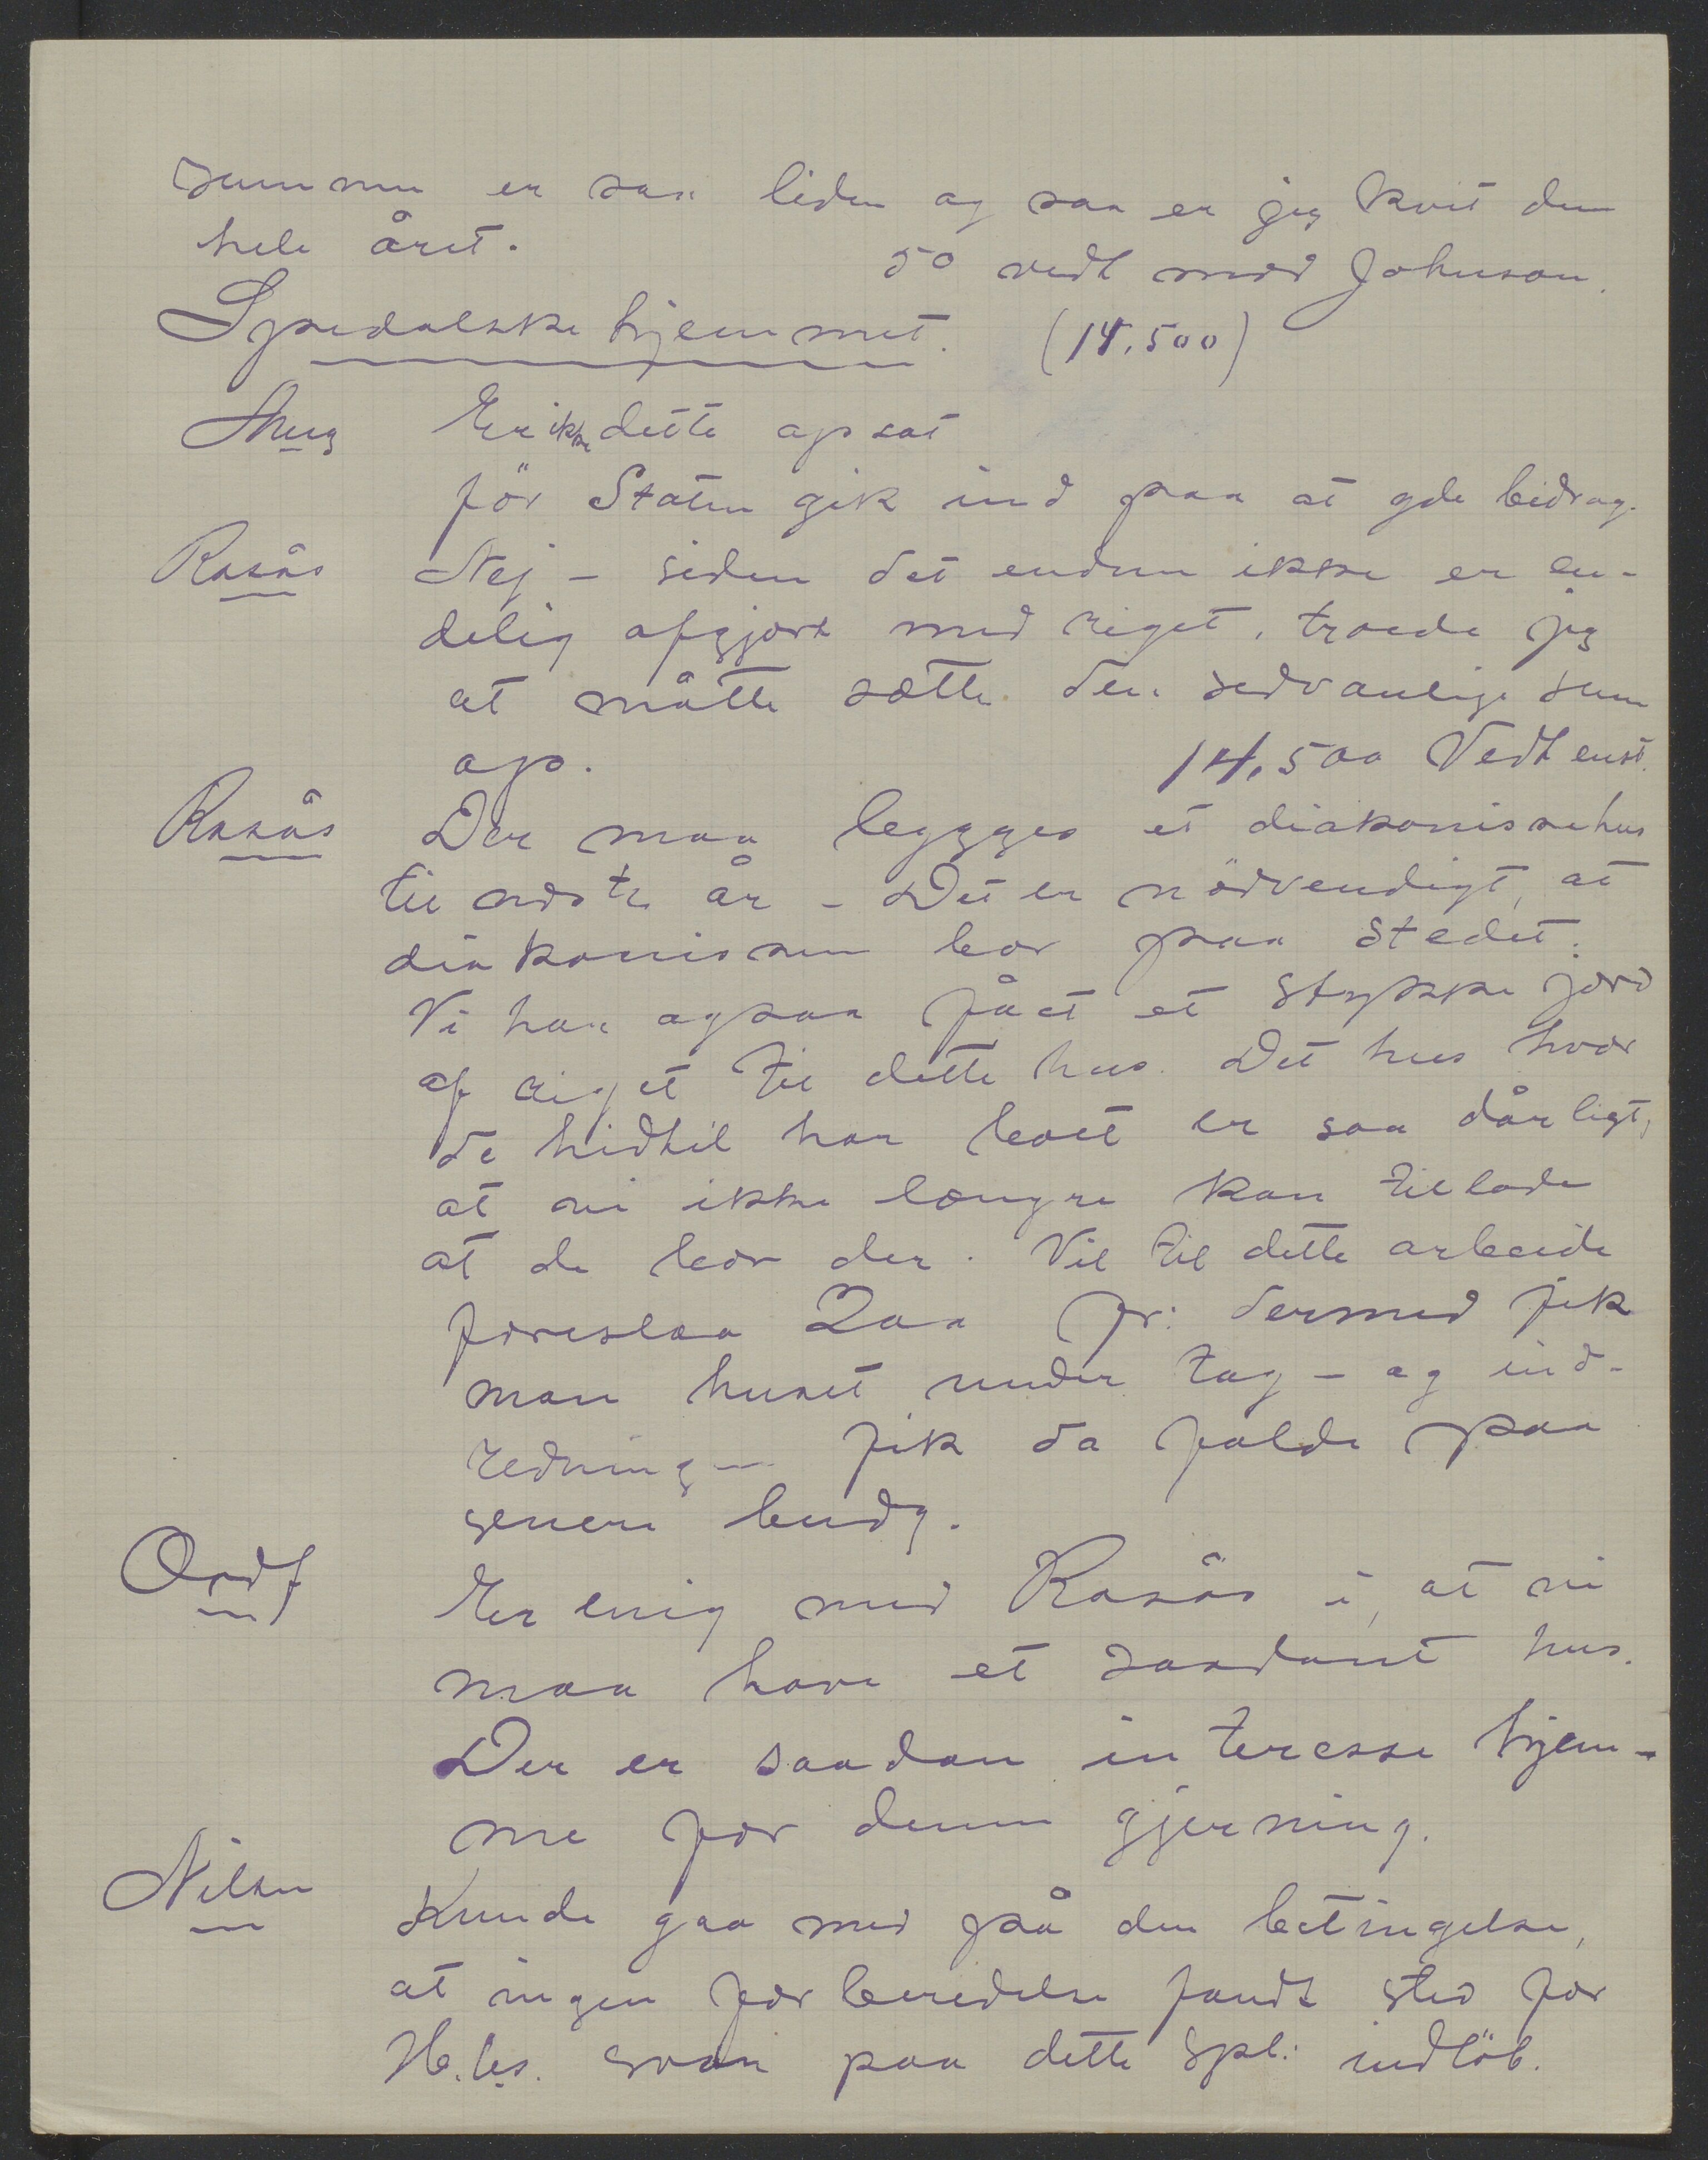 Summen er saa liden og saa er jeg kvit den
hele året.
50 vedt mod Johnson.
Spedalske hjemmet. (14.500)
Er ikke dette opsat
för Staten gik ind paa at yde bidrag.
Rosås Nej - siden det endnu ikke er en-
delig afgjort med riget, troede jeg
at måtte sætte den sedvanlige sum
op. 14,500 Vedt enst.
Rosås Der maa bygges et diakonissehus
til næste år - Det er nödvendigt, at
diakonissen bor paa stedet.
Vi har ogsaa fået et stykke jord
af riget til dette hus. Det hus hvor
de hidtil har boet er saa dårligt,
at vi ikke længre kan tillade
at de bor der. Vil til dette arbeide
foreslaa 200 dermed fik
man huset under tag - og ind-
redning - fik da falde paa
senere budg.
Ordf Er enig med Rosås i, at vi
maa have et saadant hus.
Der er saadan interesse hjem-
me for denne gjerning.
Nilsen Kunde gaa med på den betingelse,
at ingen forberedelse fandt sted för
H.bs. svar paa dette Spl. indlöb.